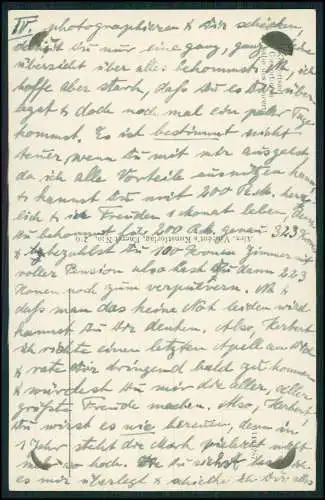 IV. photographieren & Dir schicken,
damit Du nur eine ganz, ganz
übersicht über alles bekommst. Ah, ich
hoffe aber stark, daß Du es Dir über-
legst & doch noch mal ein paar Tage
kommst. Es ist bestimmt nicht
teuer, wenn Du mit mir ausgehst,
da ich alle Vorteile ausnützen kann,
& kannst Du mit 200 Mk. herr-
lich & in Freuden 1 Monat leben, denn
Du bekommst für 200 Mk. genau 323 Kronen
& bezahlst Du 100 Kronen Zimmer mit
voller Pension also hast Du dann 223
Kronen noch zum verpulvern. Ah &
daß man das keine Not leiden wird
kannst Du Dir denken. Also, Herbert
ich richte einen letzten Apell an Dich
& rate Dir dringend bald zu kommen
& würdest Du mir die aller, aller
größte Freude machen. Also, Herbert!
Du wirst es nie bereuen, denn in
1 Jahr steht die Mark vielleicht nicht
mehr so hoch. Du
es mir überlegt & schicke Dir alles